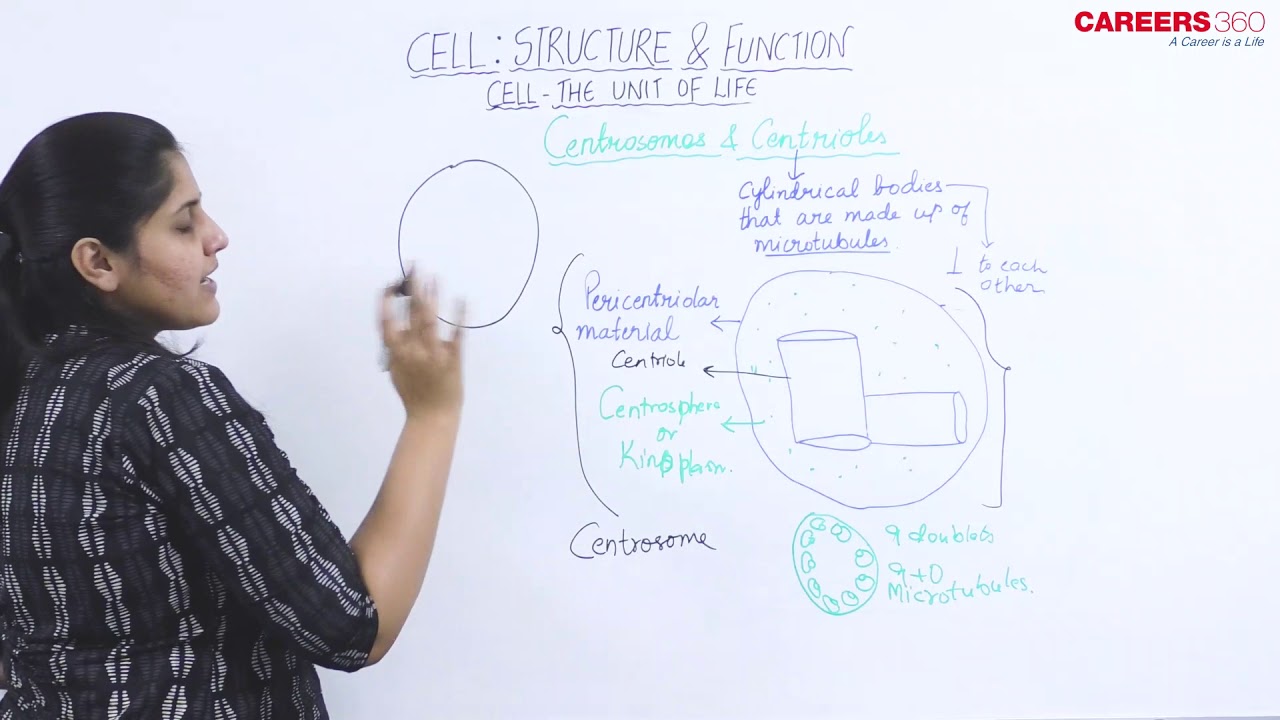 CAREERS360
A Career is a Life
CELL: STRUCTURE & FUNCTION
CELL - THE UNIT OF LIFE
Centrosomes & Centrioles
Cylindrical bodies
that are made up of
microtubules.
⊥ to each
other.
Pericentriolar
material
Centriole
Centrosphere
or
Kinoplasm.
Centrosome
9 doublets
9+0
Microtubules.